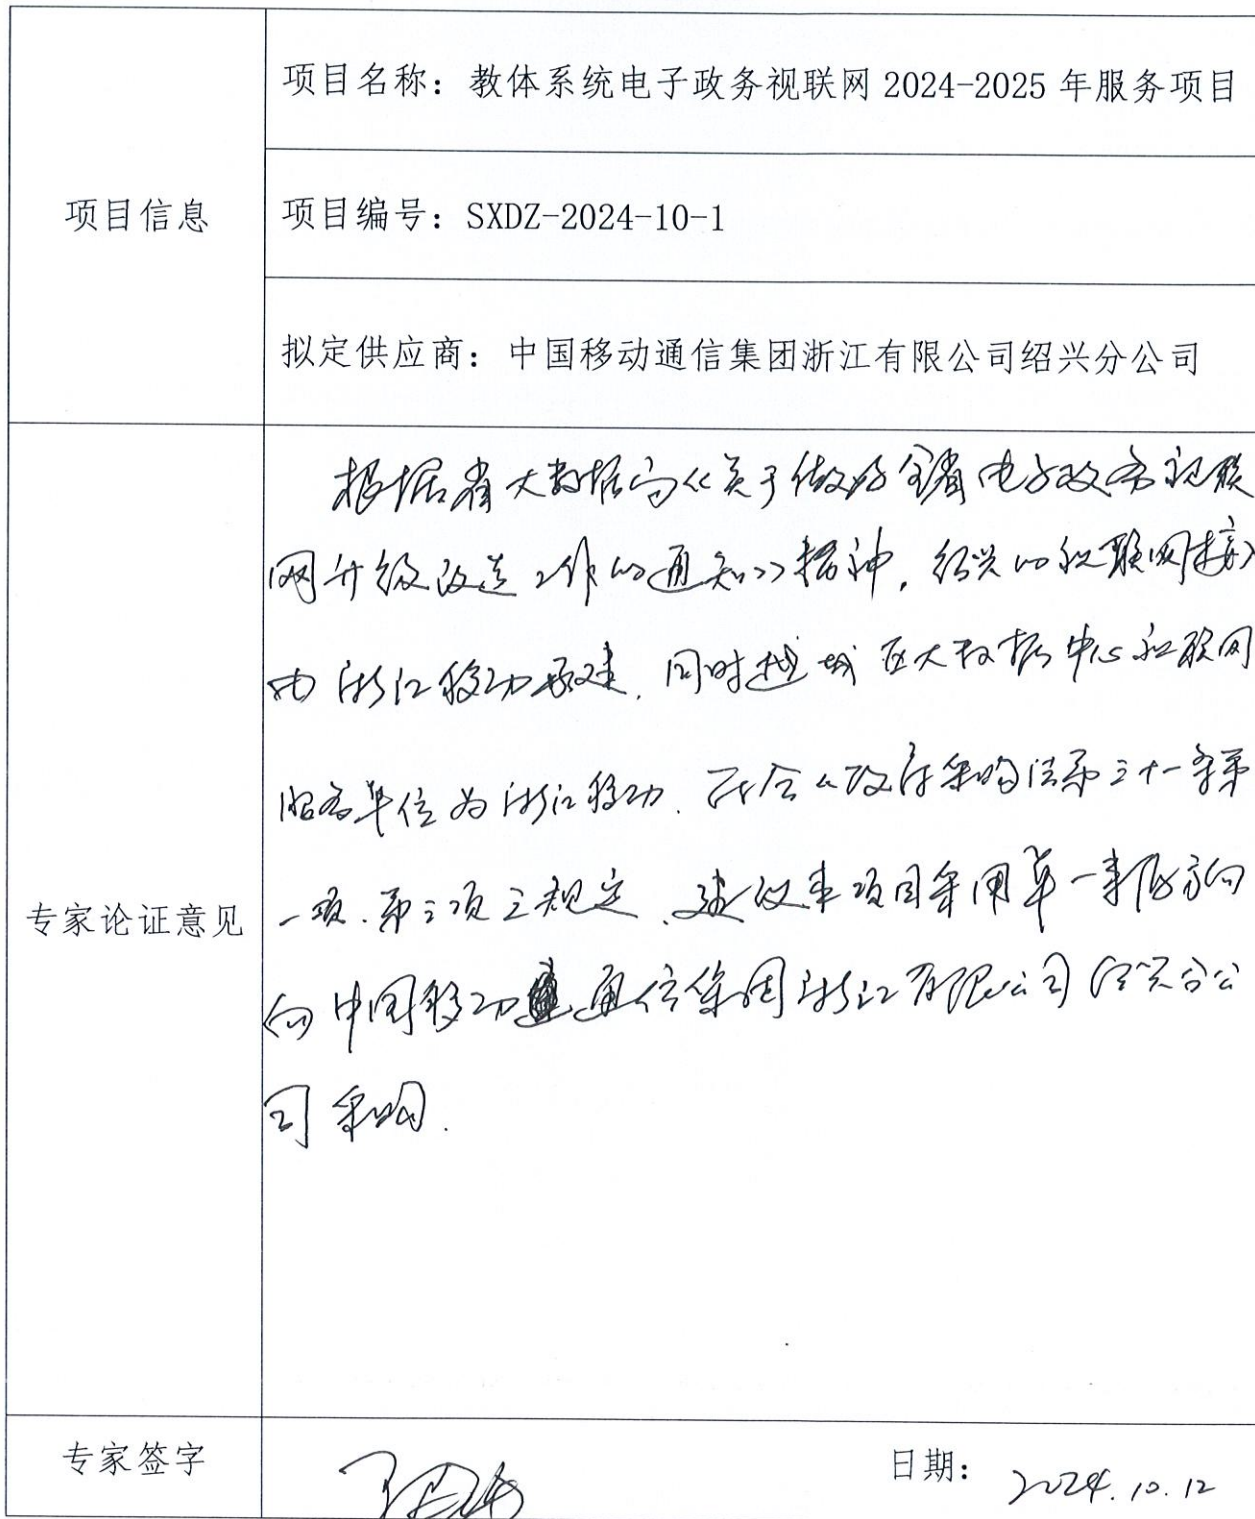 项目信息
项目名称：教体系统电子政务视联网 2024-2025 年服务项目
项目编号：SXDZ-2024-10-1
拟定供应商：中国移动通信集团浙江有限公司绍兴分公司
专家论证意见
根据省大数据局《关于做好全省电子政务视联
网升级改造工作的通知》精神，绍兴的视联网接入
由浙江移动承建，同时越城区大数据中心视联网
服务单位为浙江移动，符合《政府采购法第三十一条第
一项、第二项之规定，建议本项目采用单一来源方向
向中国移动通信集团浙江有限公司绍兴分公
司采购.
专家签字
日期：2024.10.12